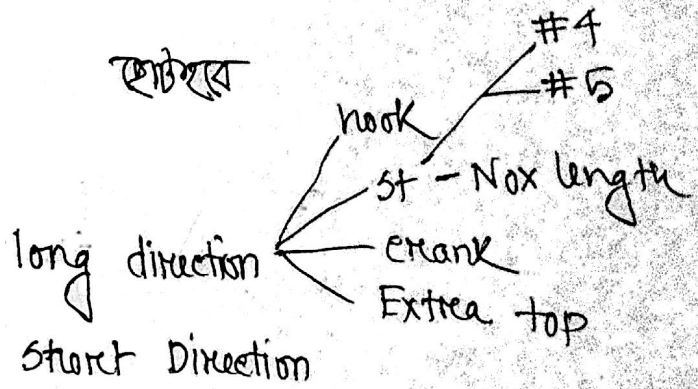 #4
ছোট হবে
#5
hook
st - Nox length
long direction
crank
Extrea top
Shoret Direction